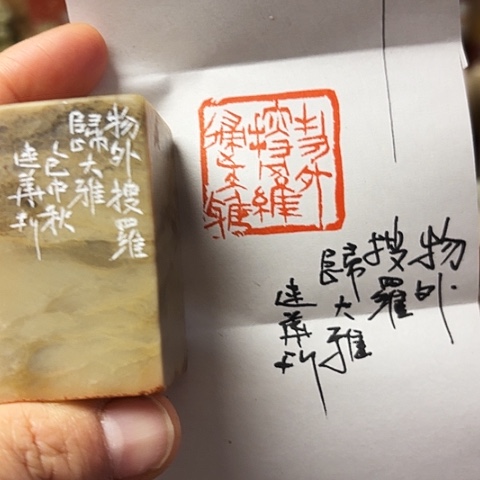 物外搜羅
歸大雅
乙巳中秋
建華刊
物外
搜羅
歸大雅
物外
搜羅
歸大雅
建華刊